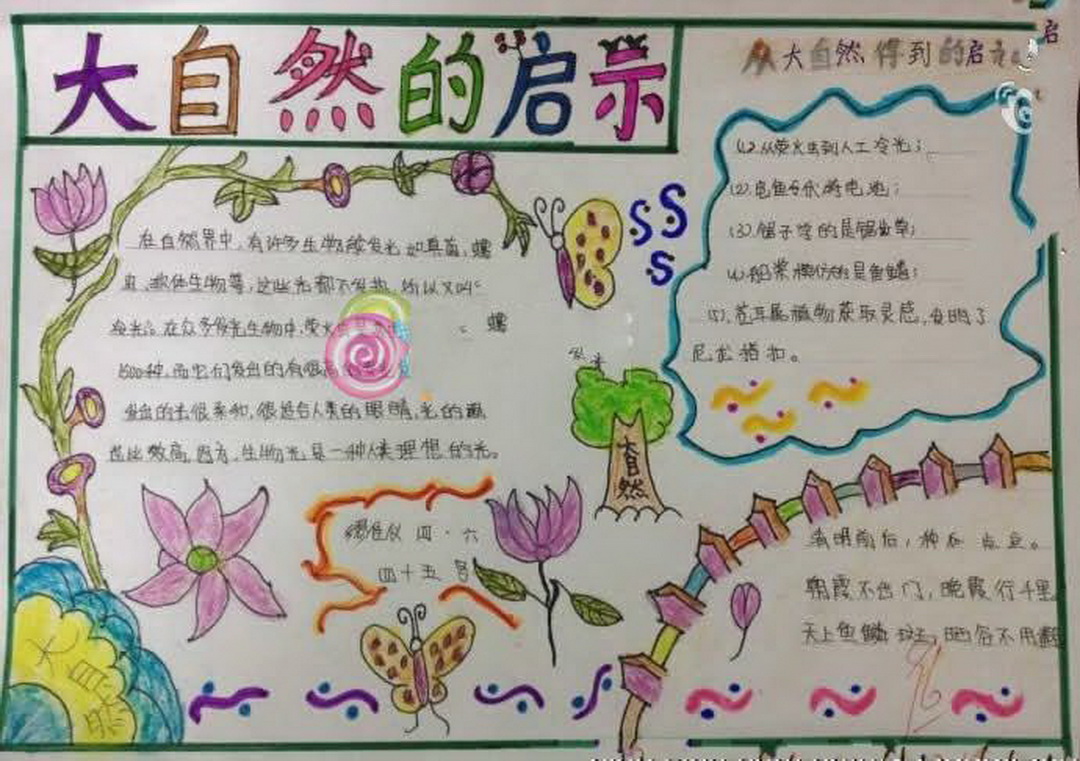 大自然的启示
从大自然得到的启示
启
(1).从萤火虫到人工冷光;
(2).电鱼与伏特电池;
(3).锯子学的是锯齿草;
(4).船桨模仿的是鱼鳍;
(5).苍耳属植物获取灵感,发明了
尼龙搭扣。
在自然界中,有许多生物能发光,如真菌,蠕
虫,软体生物等,这些光都不发热,所以又叫
冷光。在众多发光生物中,萤火
蠕
1500种,而它们发出的有很高
发出的光很柔和,很适合人类的眼睛,光的
也比较高,因为,生物光是一种人类理想的光。
大自然
四·六
四十五号
清明前后,种瓜点豆。
朝霞不出门,晚霞行千里
天上鱼鳞斑,晒谷不用翻
大自然